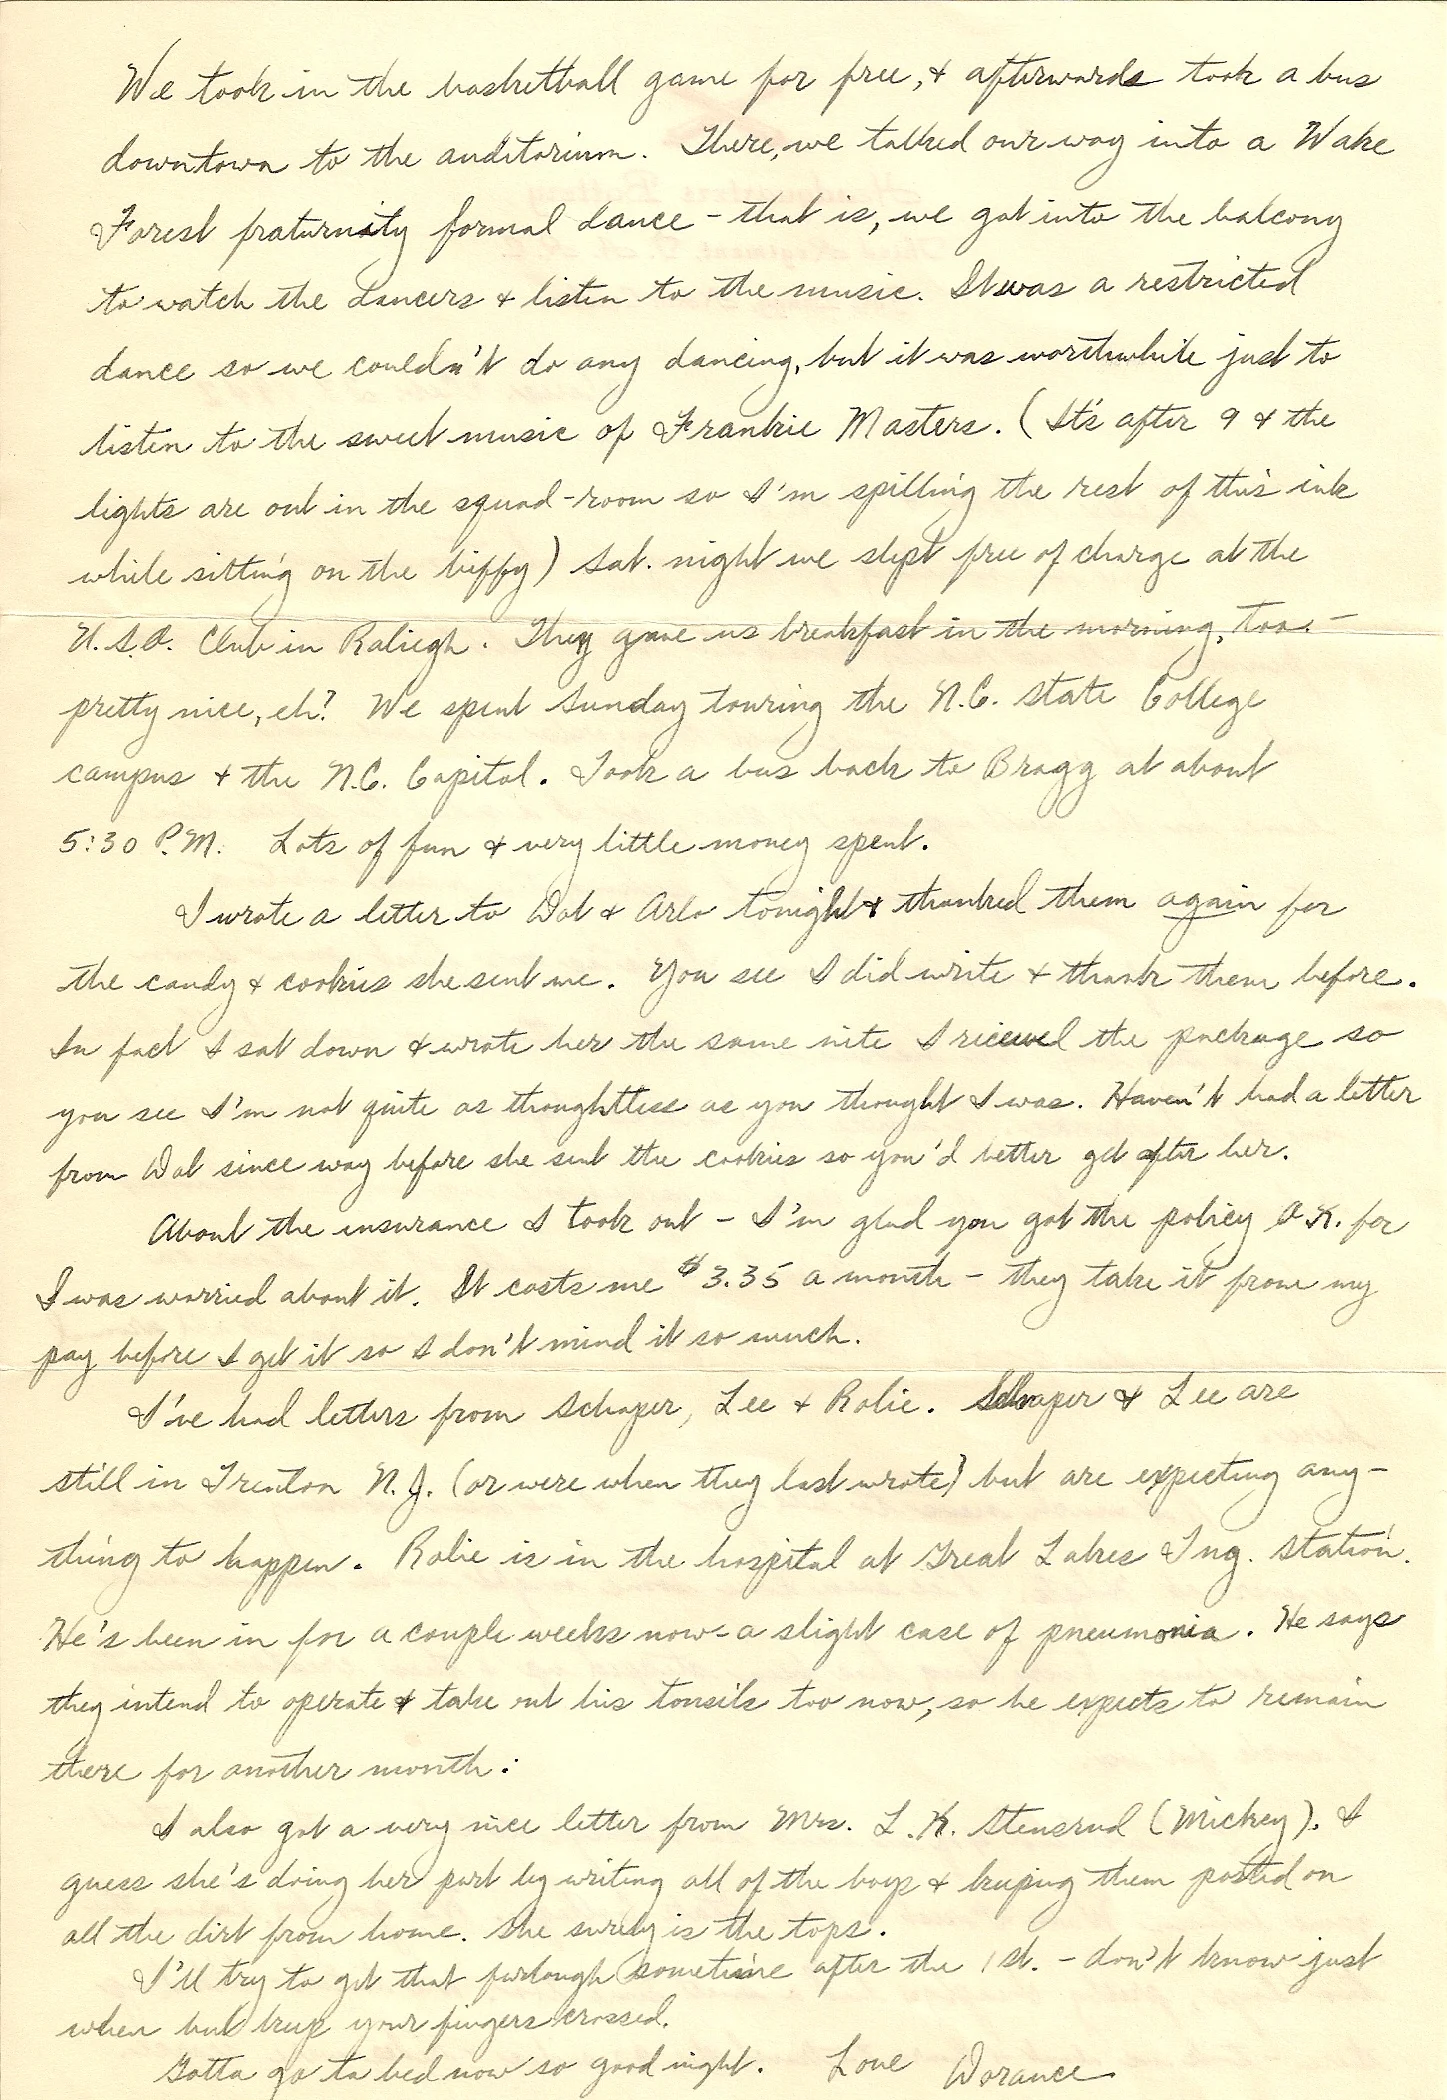 We took in the basketball game for free, & afterwards took a bus
downtown to the auditorium. There, we talked our way into a Wake
Forest fraturnity formal dance - that is, we got into the balcony
to watch the dancers & listen to the music. It was a restricted
dance so we couldn't do any dancing, but it was worthwhile just to
listen to the sweet music of Frankie Masters. (It's after 9 & the
lights are out in the squad-room so I'm spilling the rest of this ink
while sitting on the biffy) Sat. night we slept free of charge at the
U.S.O. Club in Raliegh. They gave us breakfast in the morning, too. -
pretty nice, eh? We spent Sunday touring the N.C. State College
campus & the N.C. Capitol. Took a bus back to Bragg at about
5:30 P.M. Lots of fun & very little money spent.
I wrote a letter to Dot & Arlo tonight & thanked them again for
the candy & cookies she sent me. You see I did write & thank them before.
In fact I sat down & wrote her the same nite I recieved the package so
you see I'm not quite as thoughtless as you thought I was. Haven't had a letter
from Dot since way before she sent the cookies so you'd better get after her.
About the insurance I took out - I'm glad you got the policy O.K. for
I was worried about it. It costs me $3.35 a month - they take it from my
pay before I get it so I don't mind it so much.
I've had letters from Schaper, Lee & Rolie. Schaper & Lee are
still in Trenton N.J. (or were when they last wrote) but are expecting any-
thing to happen. Rolie is in the hospital at Great Lakes Tng. Station.
He's been in for a couple weeks now - a slight case of pneumonia. He says
they intend to operate & take out his tonsils too now, so he expects to remain
there for another month.
I also got a very nice letter from Mrs. L.K. Stensrud (Mickey). I
guess she's doing her part by writing all of the boys & keeping them posted on
all the dirt from home. She surely is the tops.
I'll try to get that furlough sometime after the 1st. - don't know just
when but keep your fingers crossed.
Gotta go to bed now so good night. Love Dorance